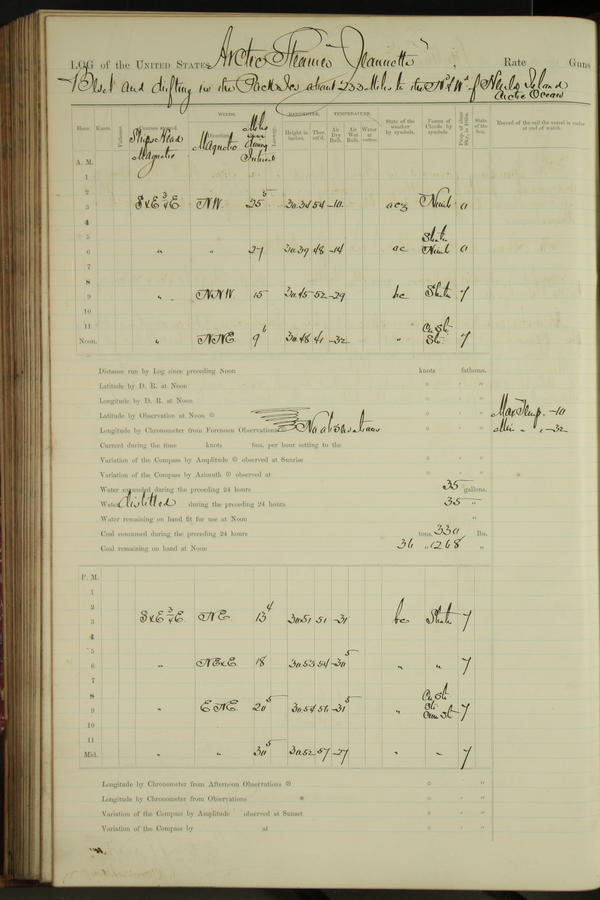 LOG of the UNITED STATES Arctic Steamer "Jeannette", Rate Guns
Beset and drifting in the Pack Ice about 233 Miles to the Nd & Wd of Herald Island
Arctic Ocean
WINDS. BAROMETER. TEMPERATURE.
Hour. Knots. Fathoms. Courses steered. Ships Head Magnetic Direction. Magnetic Miles during Leeway. Height in inches. Ther. att'd. Air Dry Bulb. Air Wet Bulb. Water at surface. State of the weather by symbols. Forms of Clouds by symbols. Prop. of clear Sky, in 10ths. State of the Sea. Record of the sail the vessel is under at end of watch.
A. M.
1
2
3 S & E ¾ E NW. 25⁵ 30.34 54 -10 Nimb 0
4
5 Strat
6 " " 27 30.39 48 -14 Nimb 0
7
8
9 " NNW 15 30.45 52 -29 bc Strat 7
10
11 Cu St
Noon. " NNE 9⁶ 30.48 41 -32 " Str 7
Distance run by Log since preceding Noon knots fathoms.
Latitude by D. R. at Noon ° ' "
Longitude by D. R. at Noon ° ' "
Latitude by Observation at Noon ° ' " Max Temp. -10
Longitude by Chronometer from Forenoon Observations No observations ° ' " Min " " -32
Current during the time knots fms. per hour setting to the
Variation of the Compass by Amplitude observed at Sunrise ° ' "
Variation of the Compass by Azimuth observed at ° ' "
Water expended during the preceding 24 hours 35 gallons.
Water distilled during the preceding 24 hours 35 "
Water remaining on hand fit for use at Noon "
Coal consumed during the preceding 24 hours tons, 330 lbs.
Coal remaining on hand at Noon 36 " 1268 "
P. M.
1
2
3 S & E ¾ E NE 13⁴ 30.51 51 -31 bc Strat 7
4
5
6 " NE & E 18 30.53 54 -30⁵ " " 7
7
8 Cu St
9 " ENE 20⁵ 30.54 56 -31⁵ " 7
10
11
Mid. " " 30⁵ 30.52 57 -27 " " 7
Longitude by Chronometer from Afternoon Observations ° ' "
Longitude by Chronometer from Observations ° ' "
Variation of the Compass by Amplitude observed at Sunset ° ' "
Variation of the Compass by at ° ' "